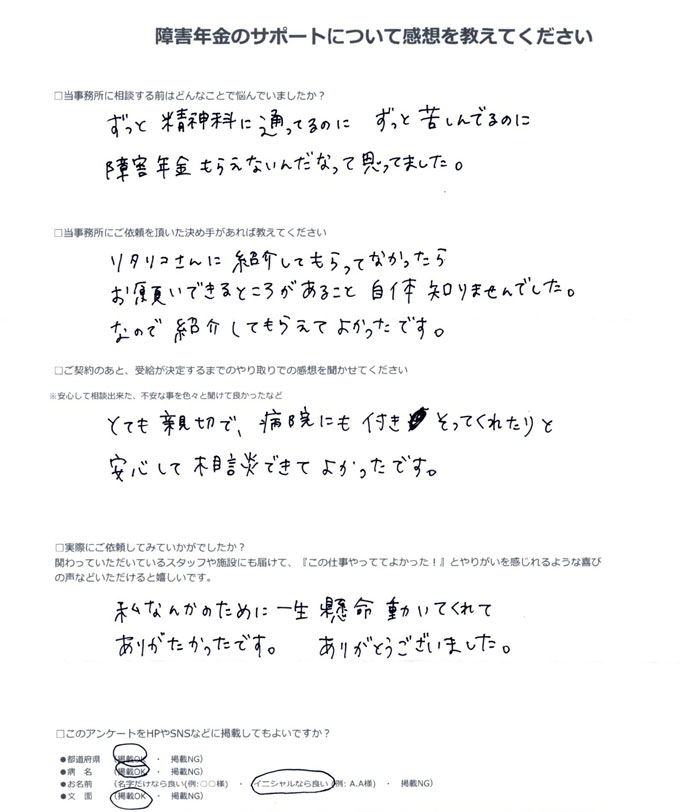 障害年金のサポートについて感想を教えてください
□当事務所に相談する前はどんなことで悩んでいましたか？
ずっと 精神科に通ってるのに ずっと苦しんでるのに
障害年金もらえないんだなって思ってました。
□当事務所にご依頼を頂いた決め手があれば教えてください
リタリコさんに紹介してもらってなかったら
お願いできるところがあること自体知りませんでした。
なので紹介してもらえてよかったです。
□ご契約のあと、受給が決定するまでのやり取りでの感想を聞かせてください
※安心して相談出来た、不安な事を色々と聞けて良かったなど
とても親切で、病院にも付きそってくれたりと
安心して相談できてよかったです。
□実際にご依頼してみていかがでしたか？
関わっていただいているスタッフや施設にも届けて、『この仕事やっててよかった！』とやりがいを感じれるような喜び
の声などいただけると嬉しいです。
私なんかのために一生懸命動いてくれて
ありがたかったです。 ありがとうございました。
□このアンケートをHPやSNSなどに掲載してもよいですか？
●都道府県 （掲載OK ・ 掲載NG）
●病 名 （掲載OK ・ 掲載NG）
●お名前 （名字だけなら良い(例:○○様) ・ イニシャルなら良い(例: A.A様) ・ 掲載NG）
●文 面 （掲載OK ・ 掲載NG）